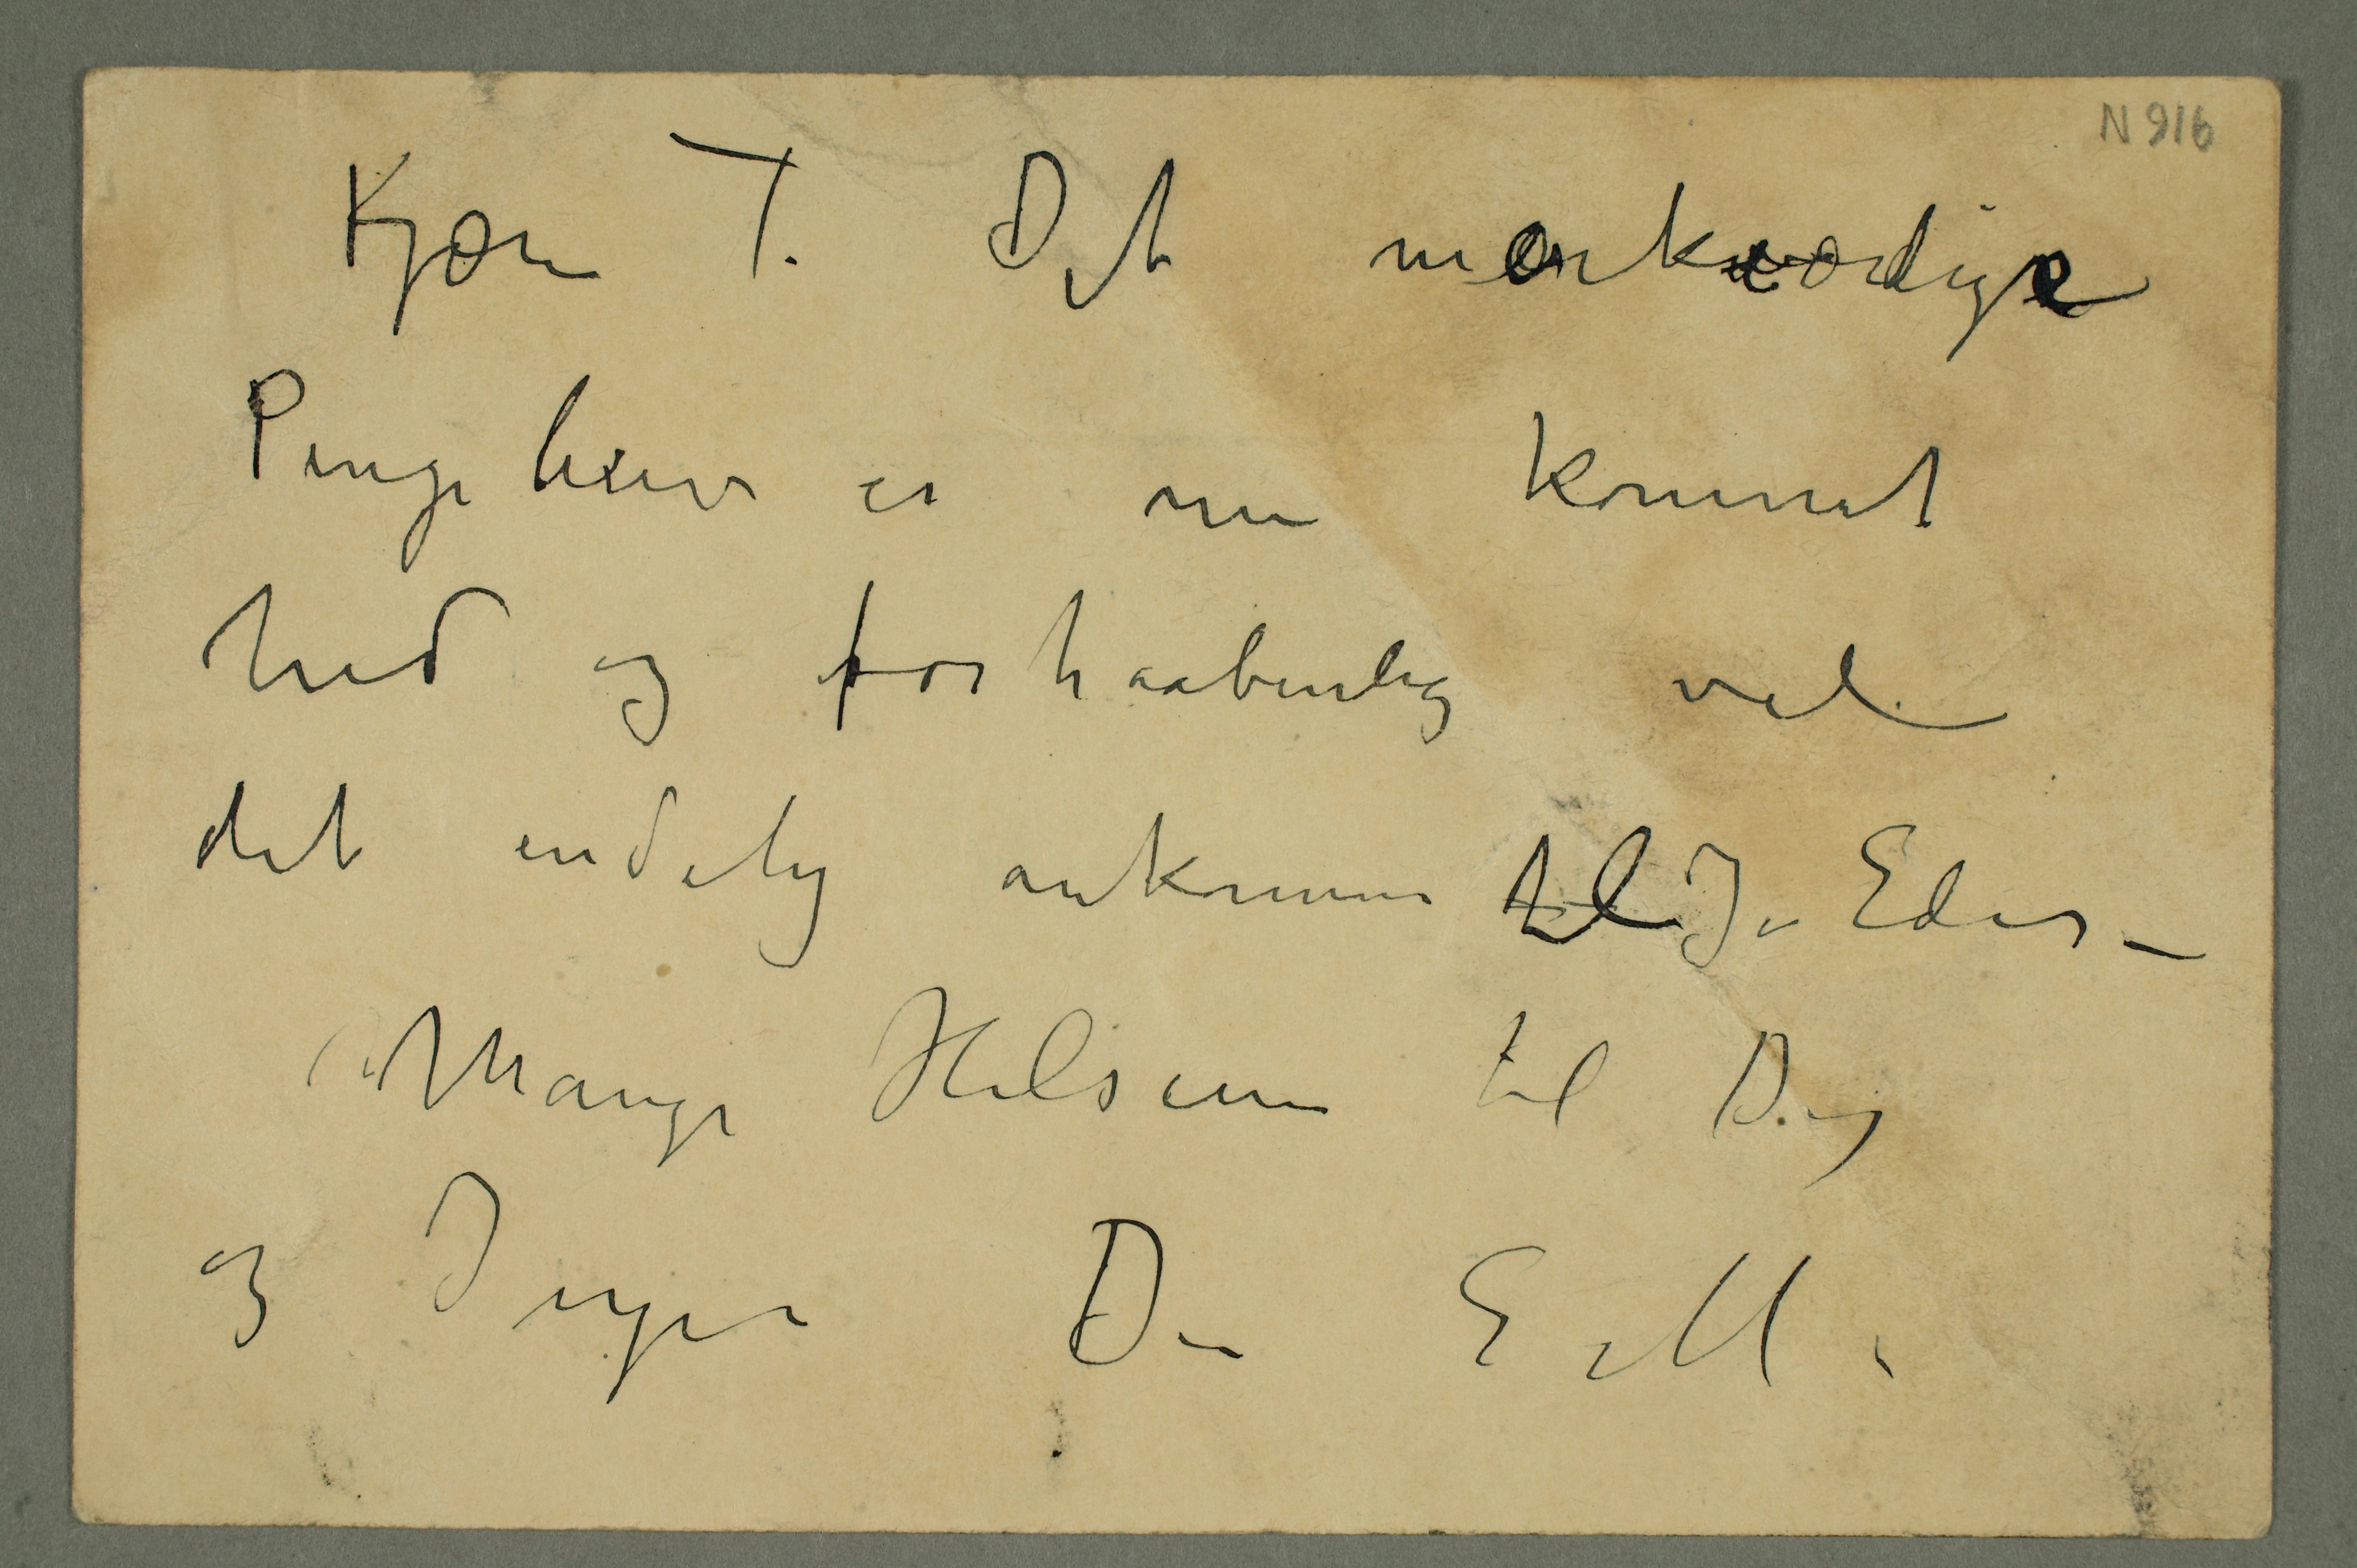 N 916
Kjære T. Det mærkværdige
Pengebrev er nu kommet
hid og forhaabentlig vil
det endelig ankomme til Jer Eder –
Mange Hilsener til Dig
og Inger Din E. M.